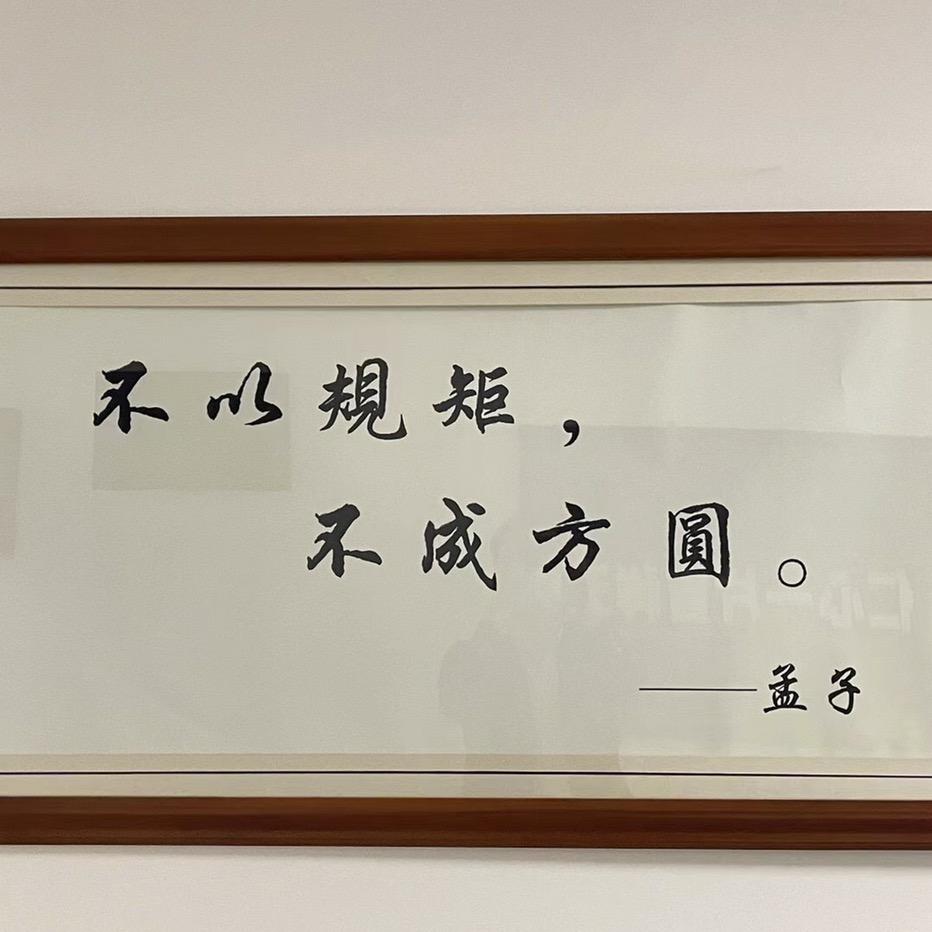 不以規矩，
不成方圓。
——孟子